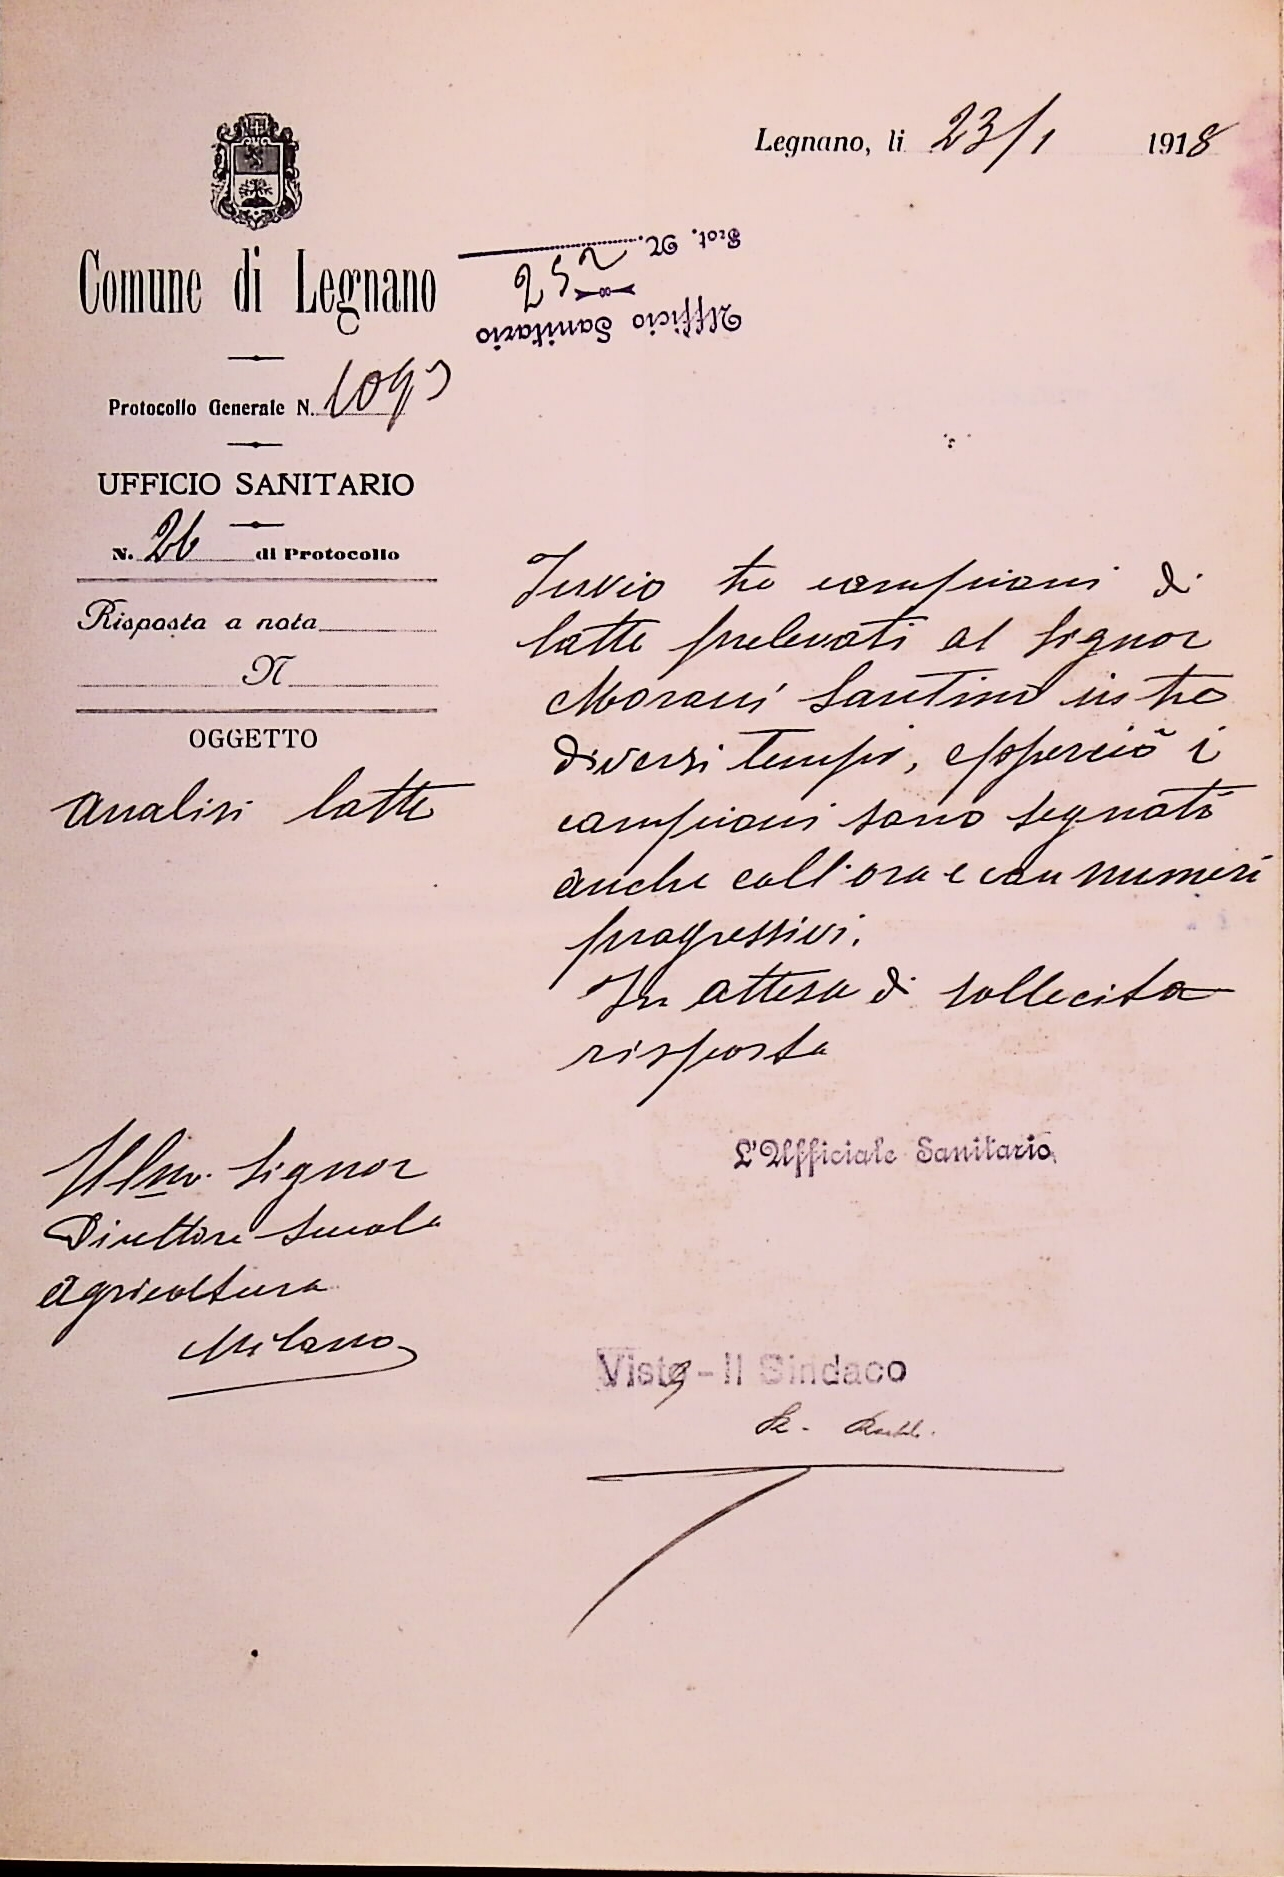 Legnano, li 23/1 1918
Comune di Legnano
Prot. N. 252
Ufficio Sanitario
Protocollo Generale N. 1093
UFFICIO SANITARIO
N. 26 di Protocollo
Risposta a nota
N
OGGETTO
Analisi latte
Invio tre campioni di
latte prelevati al Signor
Morani Santino in tre
diversi tempi, epperciò i
campioni sono segnati
anche coll'ora e con numeri
progressivi.
In attesa di sollecita
risposta
L'Ufficiale Sanitario
Ill.mo Signor
Direttore Scuola
Agricoltura
Milano
Visto - Il Sindaco